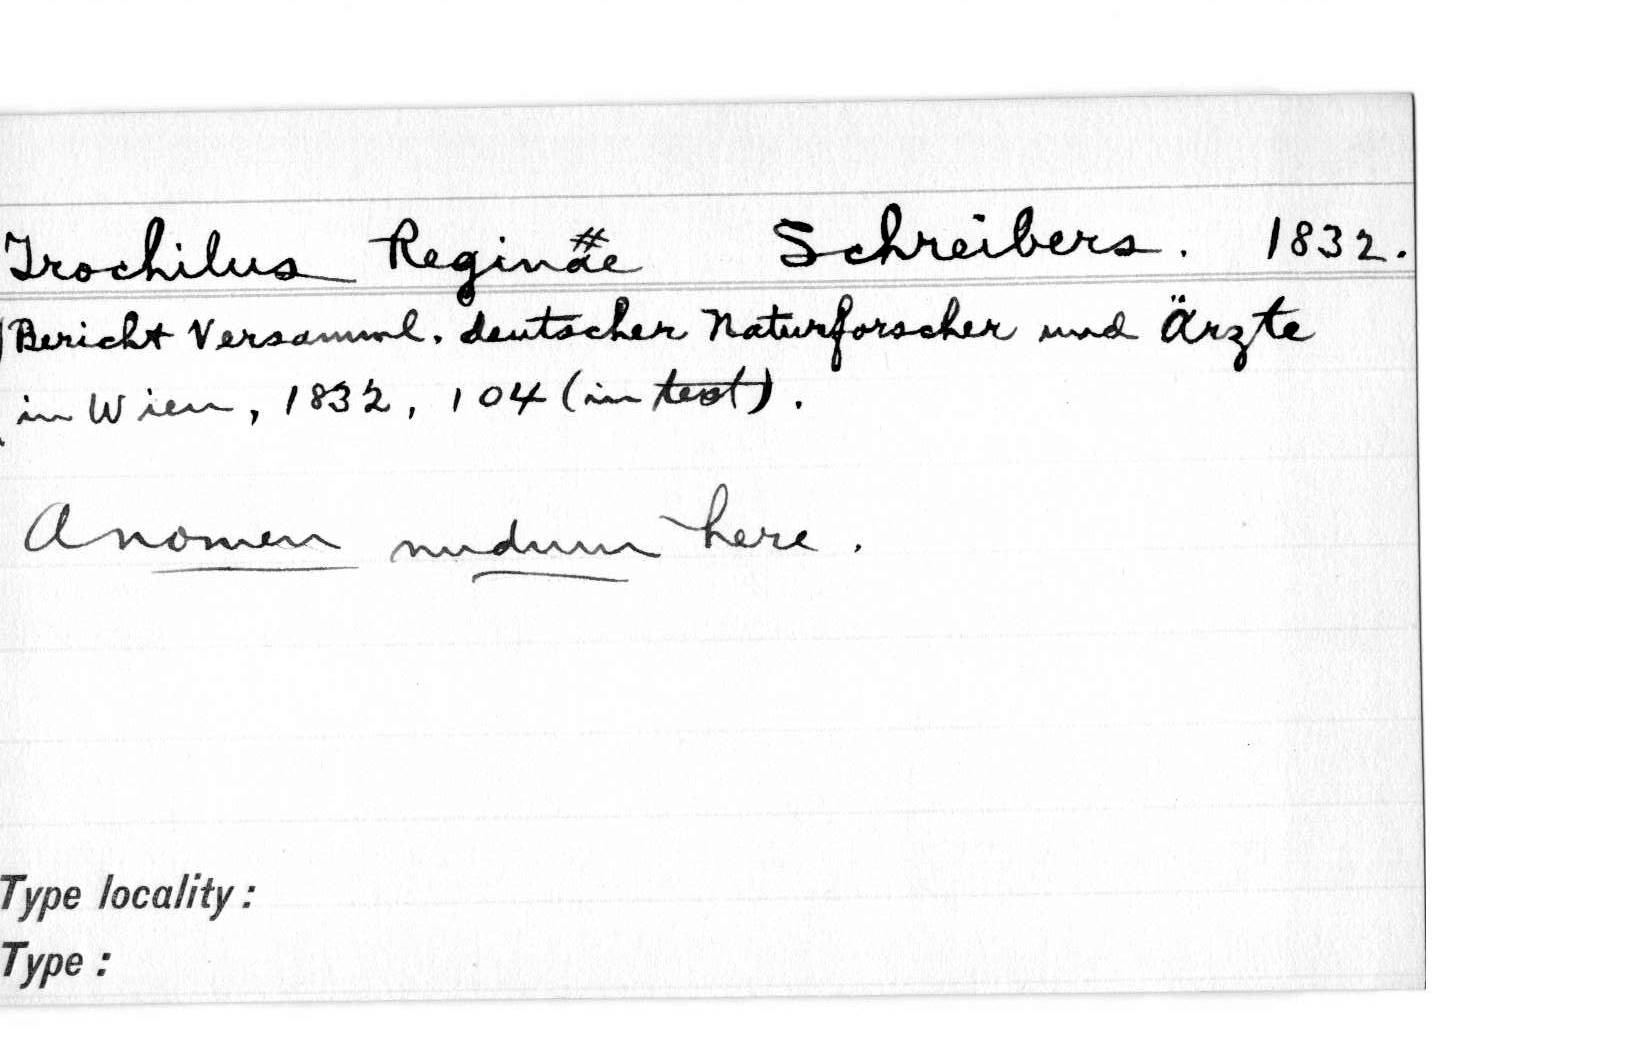 Trochilus Reginae Schreibers. 1832.
Bericht Versamml. deutscher Naturforscher und Ärzte
in Wien, 1832, 104 (in text).
A nomen nudum here.
Type locality:
Type: